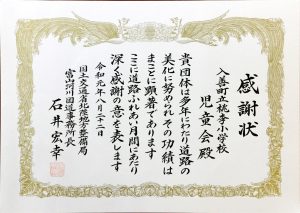 感謝状
入善町立桃李小学校
児童会殿
貴団体は多年にわたり道路の
美化に努められその功績は
まことに顕著であります
ここに道路ふれあい月間にあたり
深く感謝の意を表します
令和元年八月二十二日
国土交通省北陸地方整備局
富山河川国道事務所長
石井宏幸